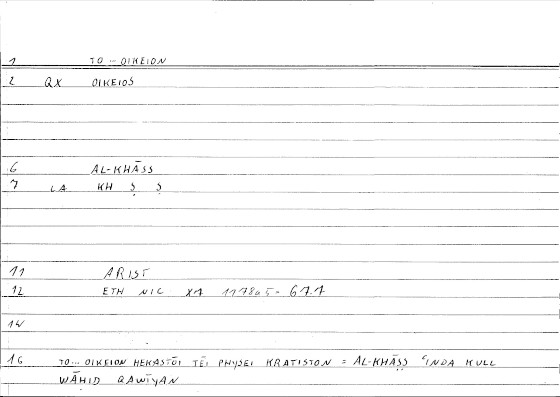 1 TO... OIKEION
2 QX OIKEIOS
6 AL-KHĀSS
7 LA KH Ṣ Ṣ
11 ARIST
12 ETH NIC X7 1178a5 = 67.1
14
16 TO... OIKEION HEKASTŌI TĒI PHYSEI KRATISTON = AL-KHĀṢṢ ʿINDA KULL
WĀḤID QAWĪYAN